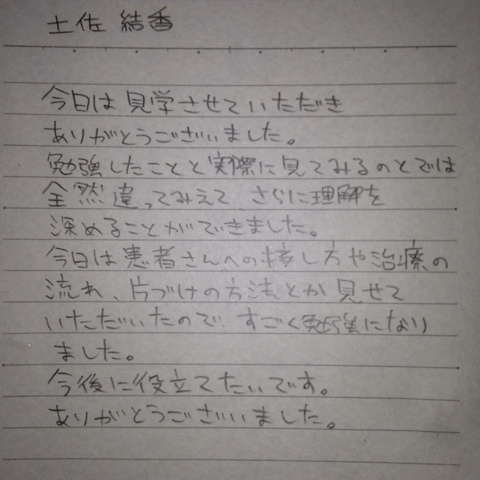 土佐 結香
今日は見学させていただき
ありがとうございました。
勉強したことと実際に見てみるのとでは
全然違ってみえて さらに理解を
深めることができました。
今日は患者さんへの接し方や治療の
流れ、片づけの方法とか見せて
いただいたので すごく勉強になり
ました。
今後に役立てたいです。
ありがとうございました。